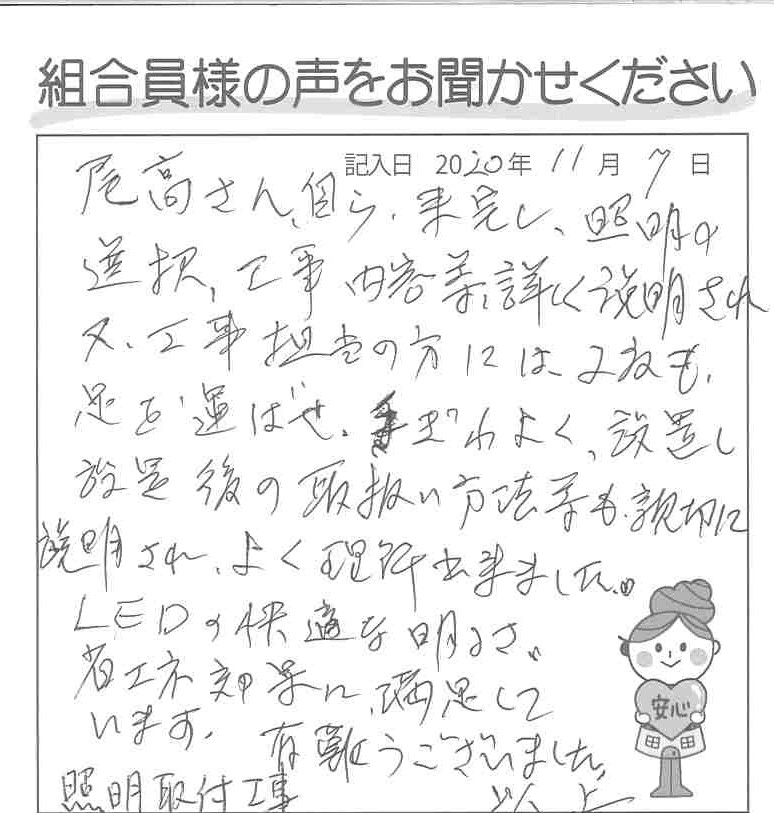 組合員様の声をお聞かせください
記入日 2020年 11月 7日
尾高さん、自ら、来宅し、照明の
選択、工事内容等、詳しく説明され
又、工事担当の方には、2度も、
足を運ばせ、手ぎわよく、設置し
設置後の取扱い方法等も、親切に
説明され、よく理解出来ました。
LEDの快適な明るさ、
省エネ効果に、満足して
います。有難うございました。
照明取付工事 以上
安心